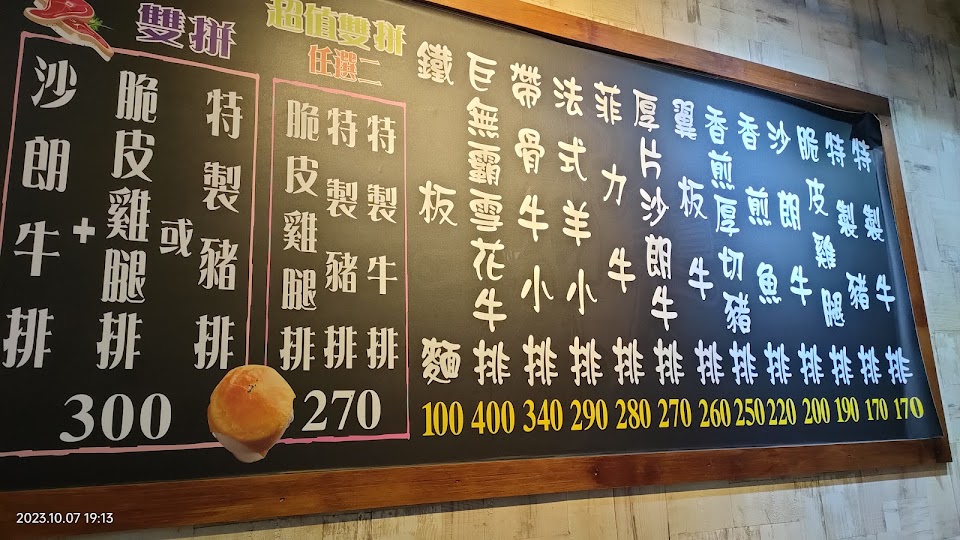 特製牛排 170
特製豬排 170
脆皮雞腿排 190
沙朗牛排 200
香煎魚排 220
香煎厚切豬排 250
翼板牛排 260
厚片沙朗牛排 270
菲力牛排 280
法式羊小排 290
帶骨牛小排 340
巨無霸雪花牛排 400
鐵板麵 100
超值雙拼
任選二
特製牛排
特製豬排
脆皮雞腿排
270
雙拼
沙朗牛排
+
脆皮雞腿排
或
特製豬排
300
2023.10.07 19:13